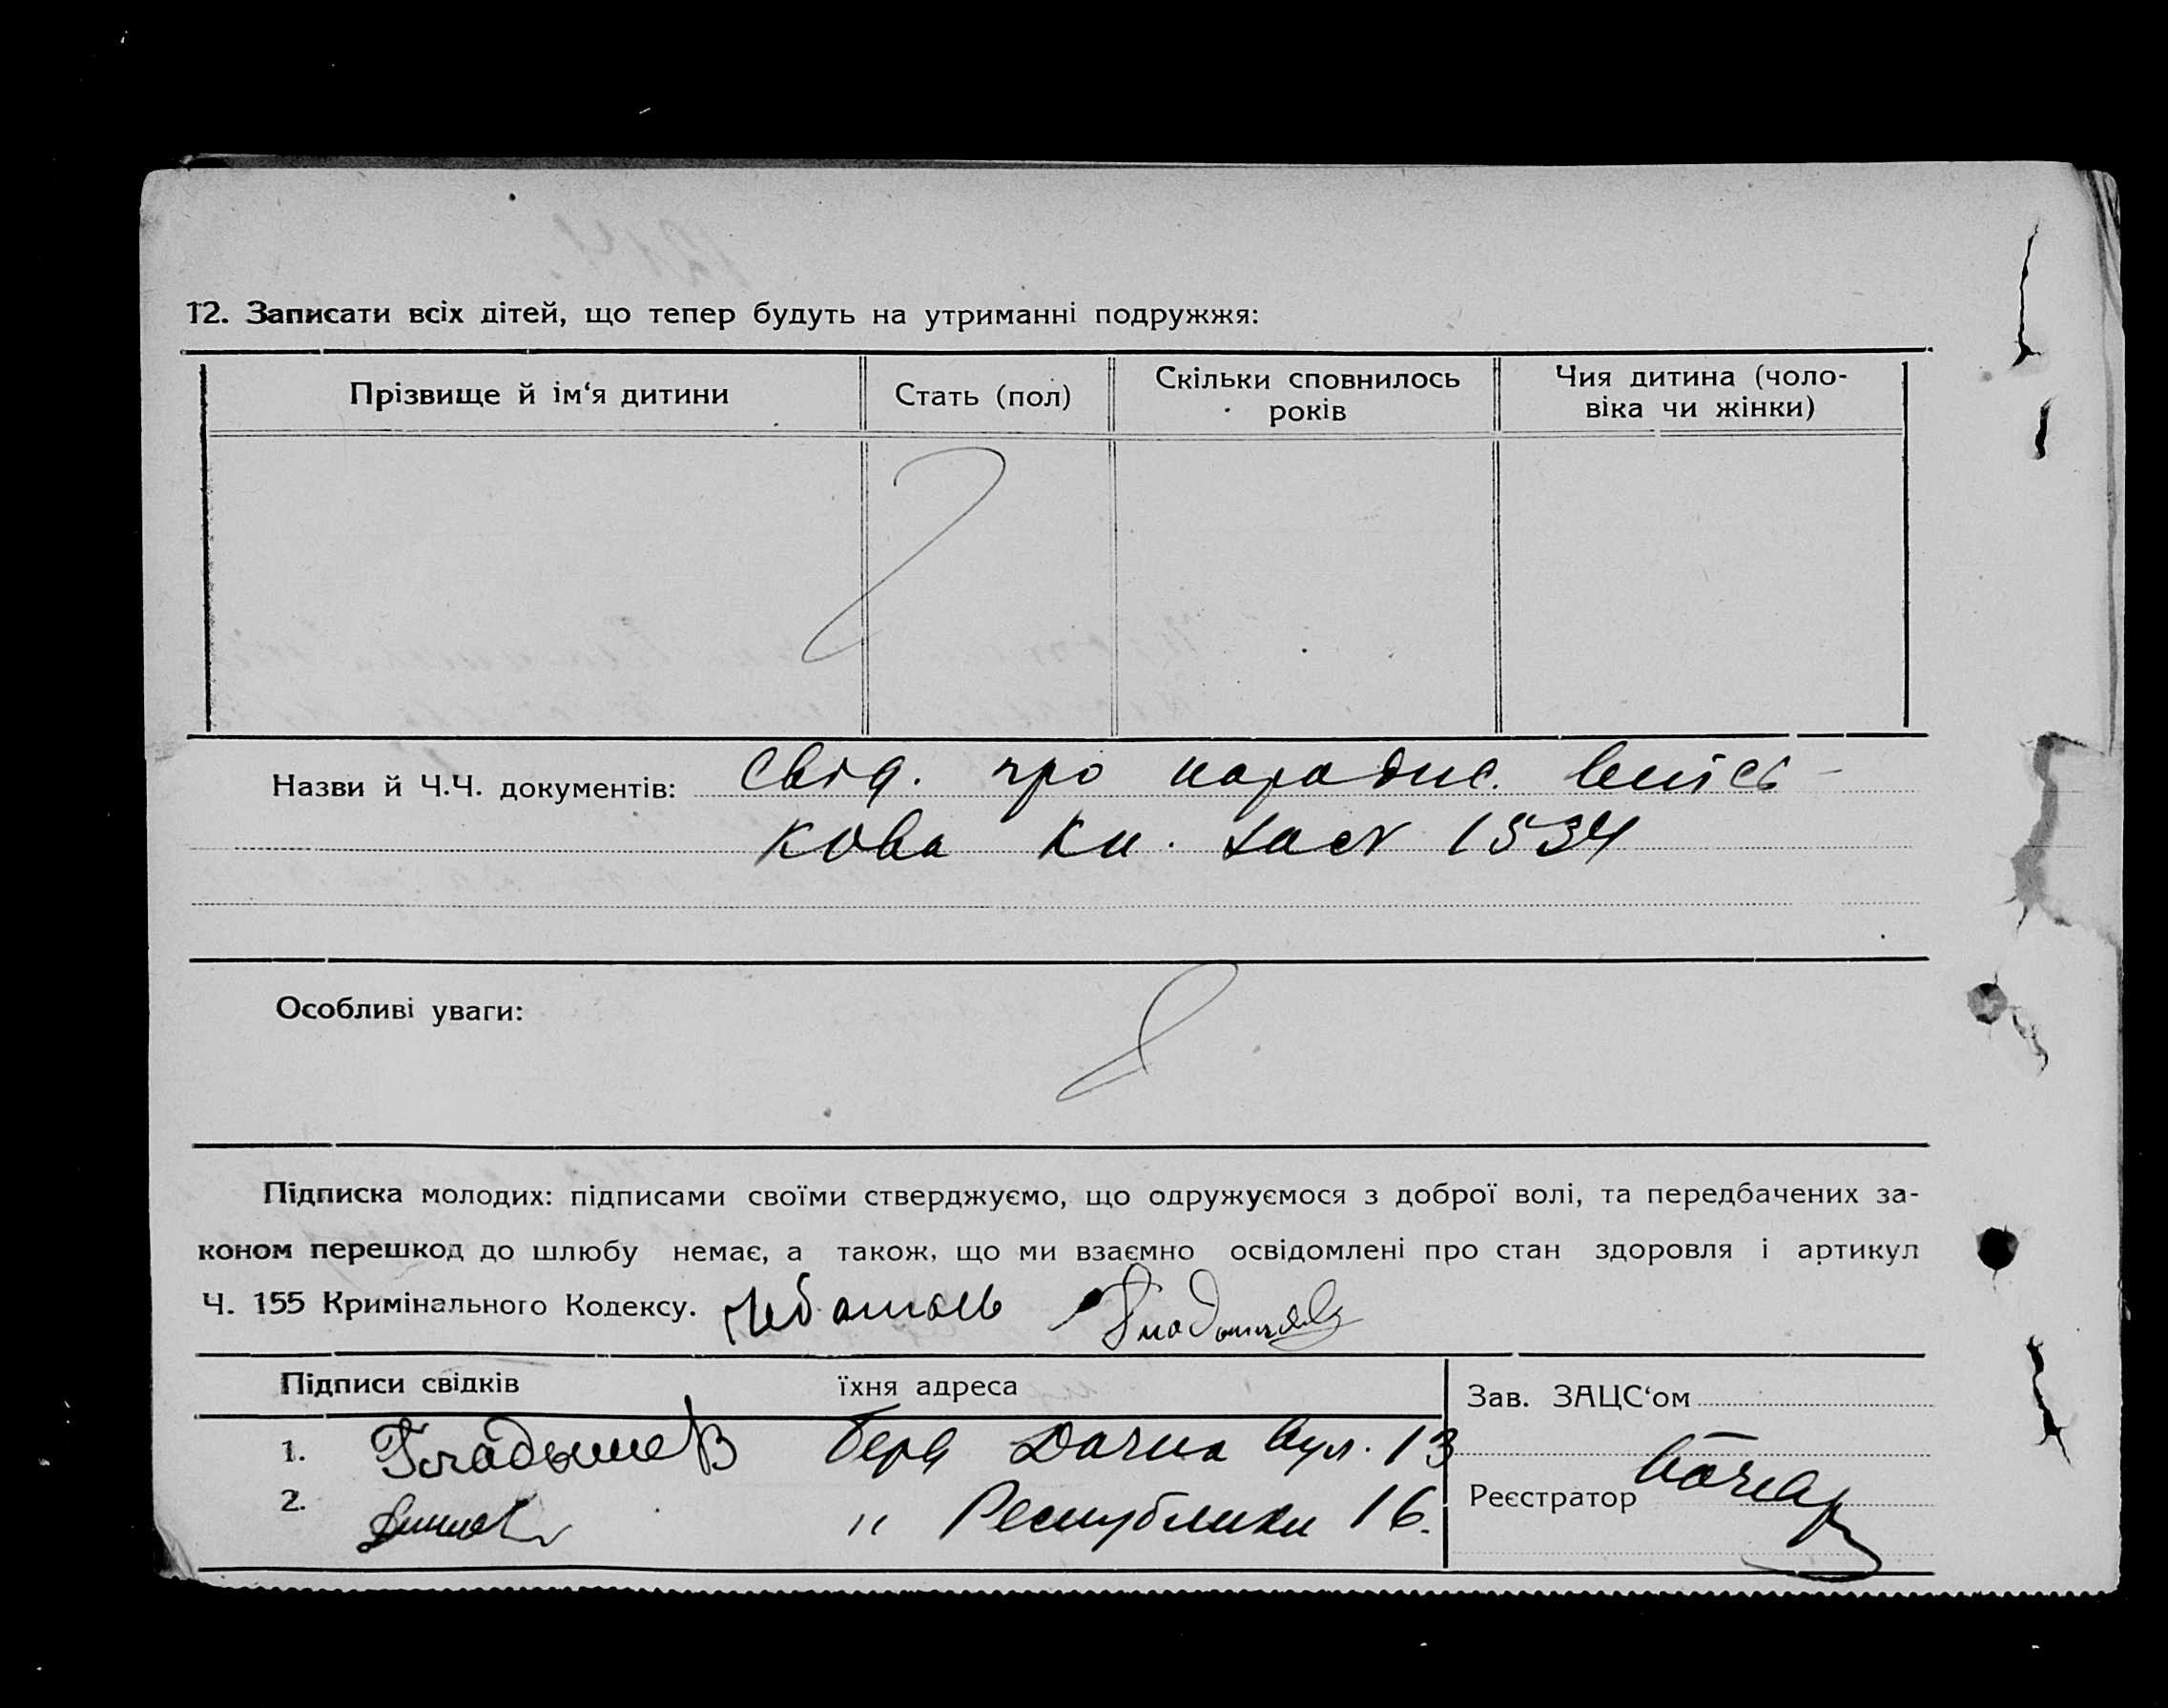 12. Записати всіх дітей, що тепер будуть на утриманні подружжя:
Прізвище й ім‘я дитини
Стать (пол)
Скільки сповнилось
років
Чия дитина (чоло-
віка чи жінки)
Назви й Ч.Ч. документів: Свід. про народж. військ-
кова кн.
Особливі уваги:
Підписка молодих: підписами своїми стверджуємо, що одружуємося з доброї волі, та передбачених за-
коном перешкод до шлюбу немає, а також, що ми взаємно освідомлені про стан здоровля і артикул
Ч. 155 Кримінального Кодексу.
Підписи свідків
їхня адреса
Зав. ЗАЦС‘ом
1. Гладышев Дачна вул. 13
2. " Республики 16.
Реєстратор